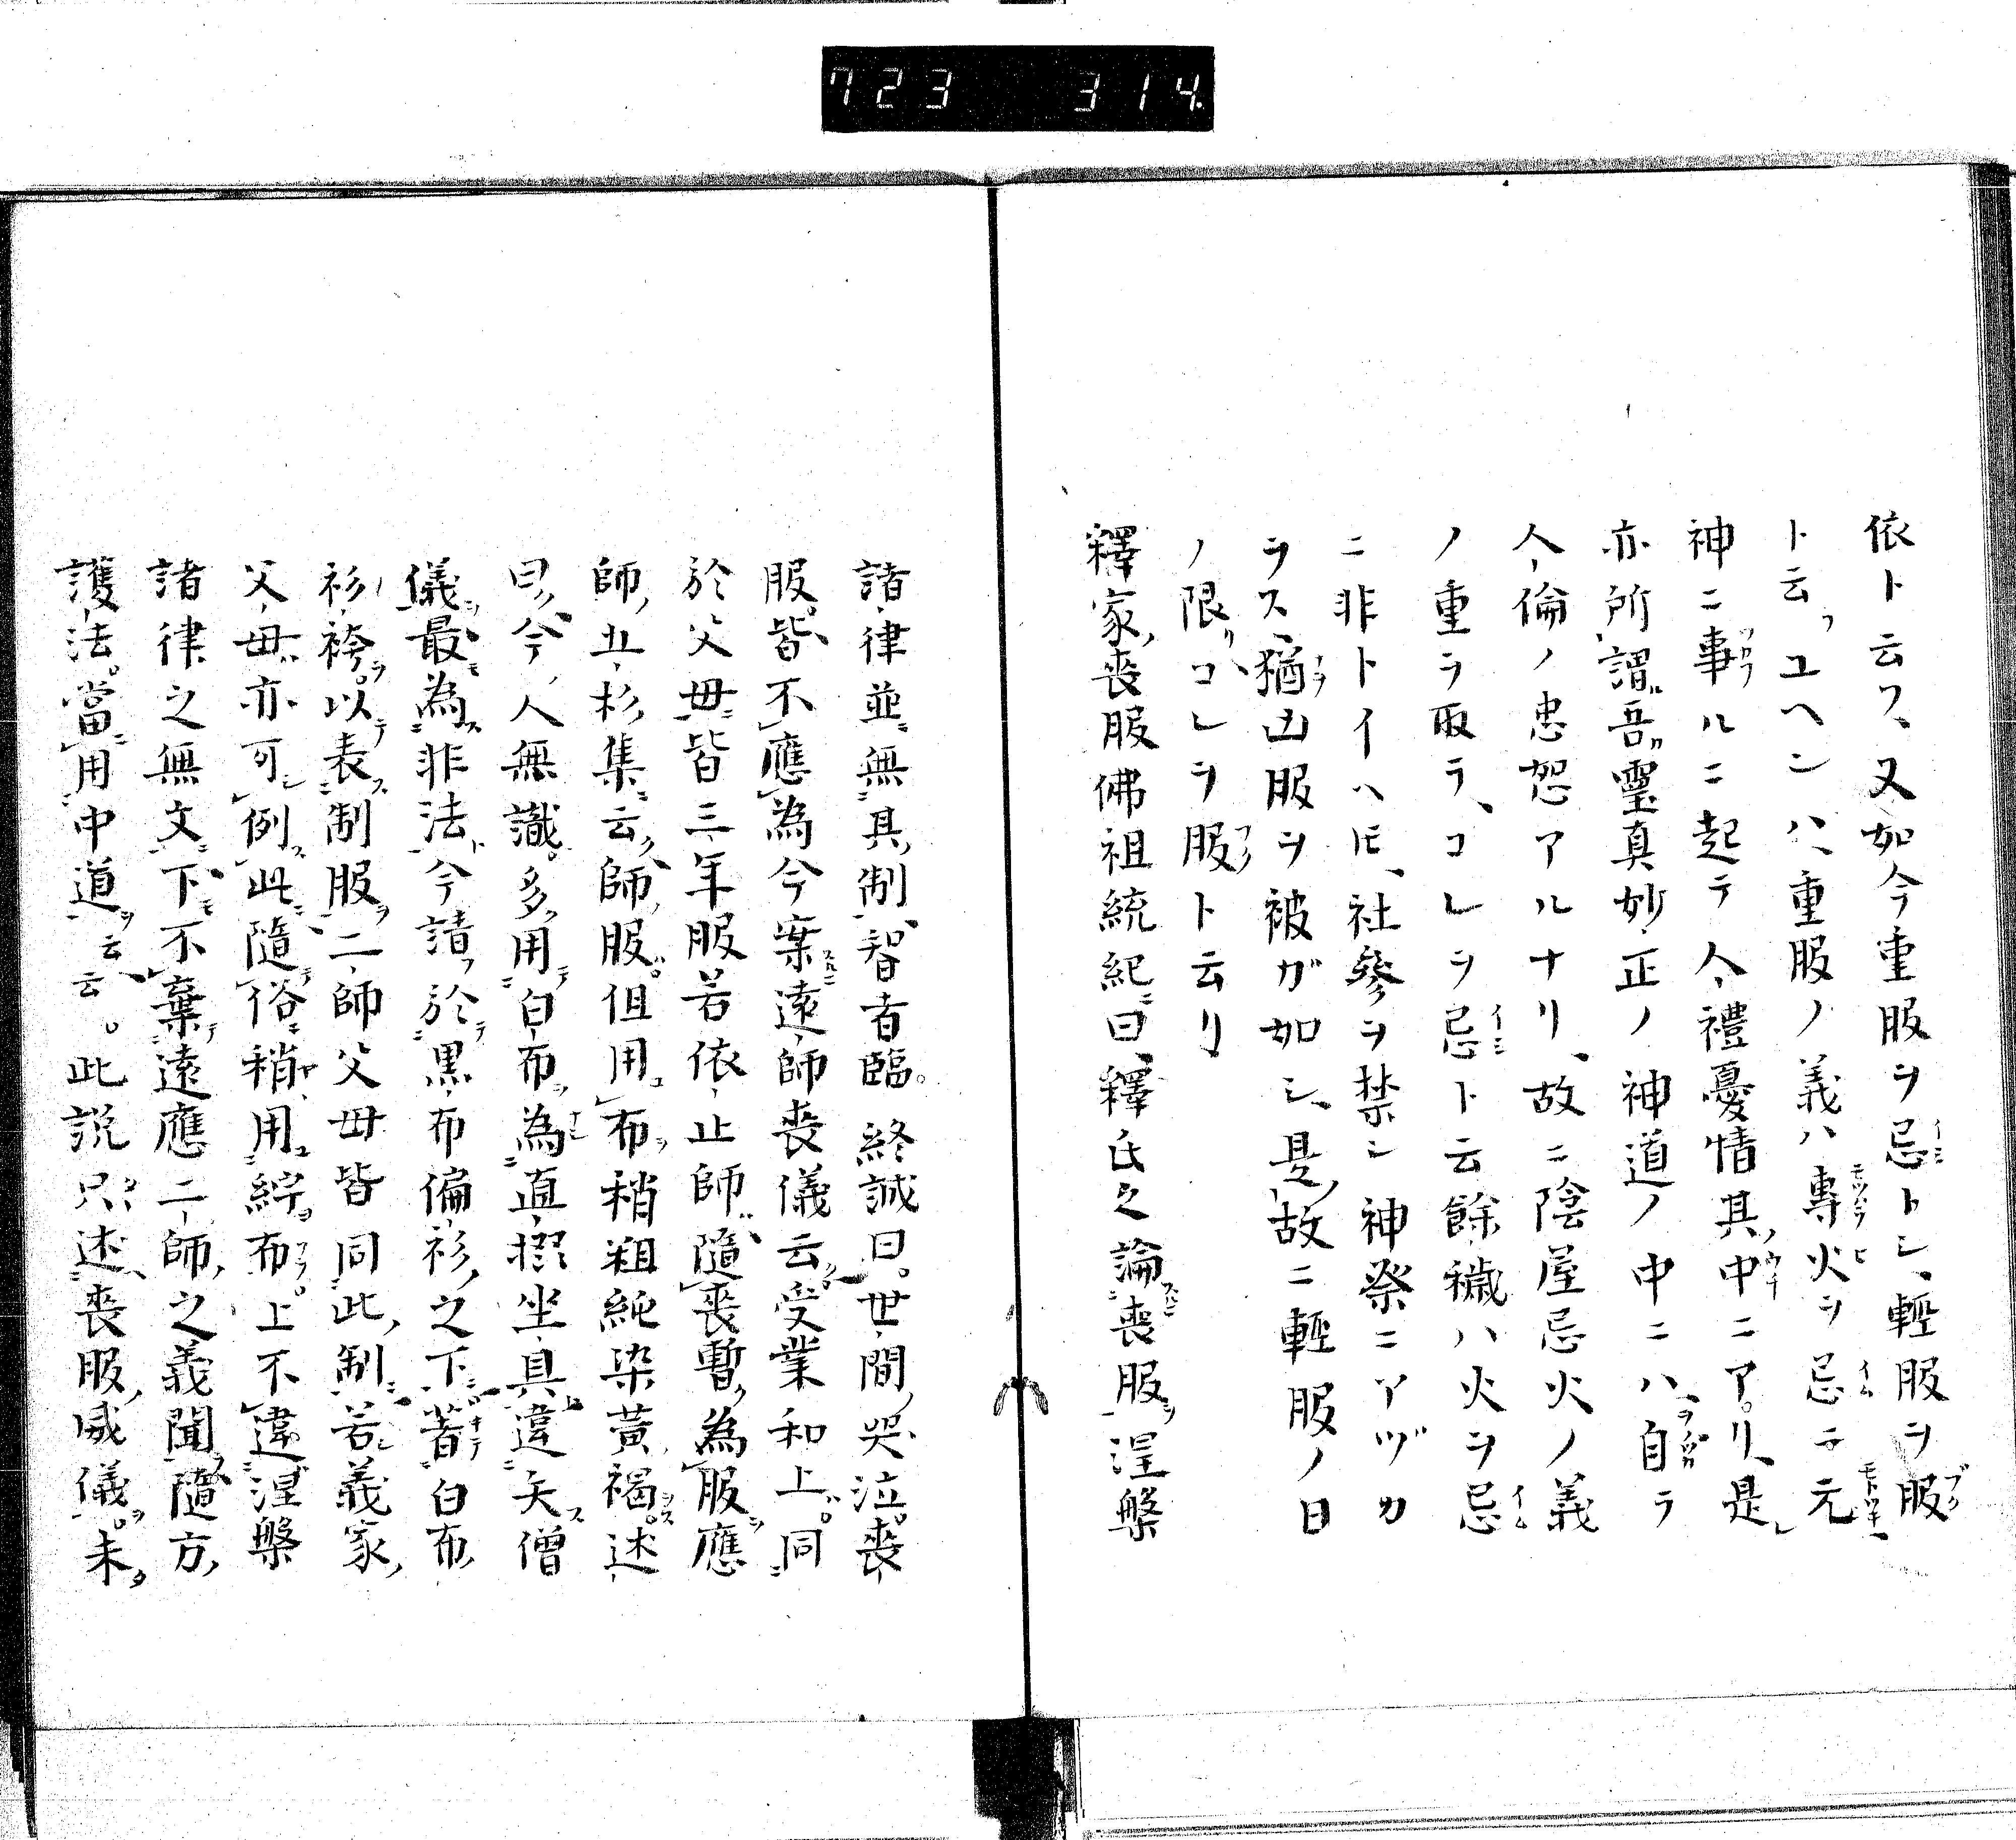 723 314
依ト云フ、又如今重服ヲ忌トシ、軽服ヲ服
ト云フユヘンハ、重服ノ義ハ專火ヲ忌テ元
神ニ事ルニ起テ人禮憂情其中ニアリ、是
亦所謂吾靈真妙正ノ神道ノ中ニハ、自ラ
人倫ノ忠恕アルナリ、故ニ陰屋忌火ノ義
ノ重ヲ取ラ、コレヲ忌ト云餘穢ハ火ヲ忌
ニ非トイヘ𪜈、社參ヲ禁シ神祭ニアヅカ
ラス、猶凶服ヲ被ガ如シ、是故ニ軽服ノ日
ノ限リ、コレヲ服ト云リ
釋家喪服佛祖統紀曰、釋氏之論喪服、涅槃
諸律並無其制、智者臨。終誠曰。世間哭泣。喪
服。皆不應為今案遠師喪儀云受業和上。同
於父毋皆三年服若依止師隨喪暫為服應
師五杉集云、師服。但用布稍粗純染黃褐。述
曰、今人無識。多用白布為直掇坐具違矢僧
儀最為非法今請於黒布偏衫之下著白布
衫袴。以表制服、二師父毋皆同此制若義家
父毋亦可例此隨俗稍用紵布。上不違涅槃
諸律之無文下不棄遠應二師之義聞隨方
護法。當用中道云云。此説只述喪服威儀。未